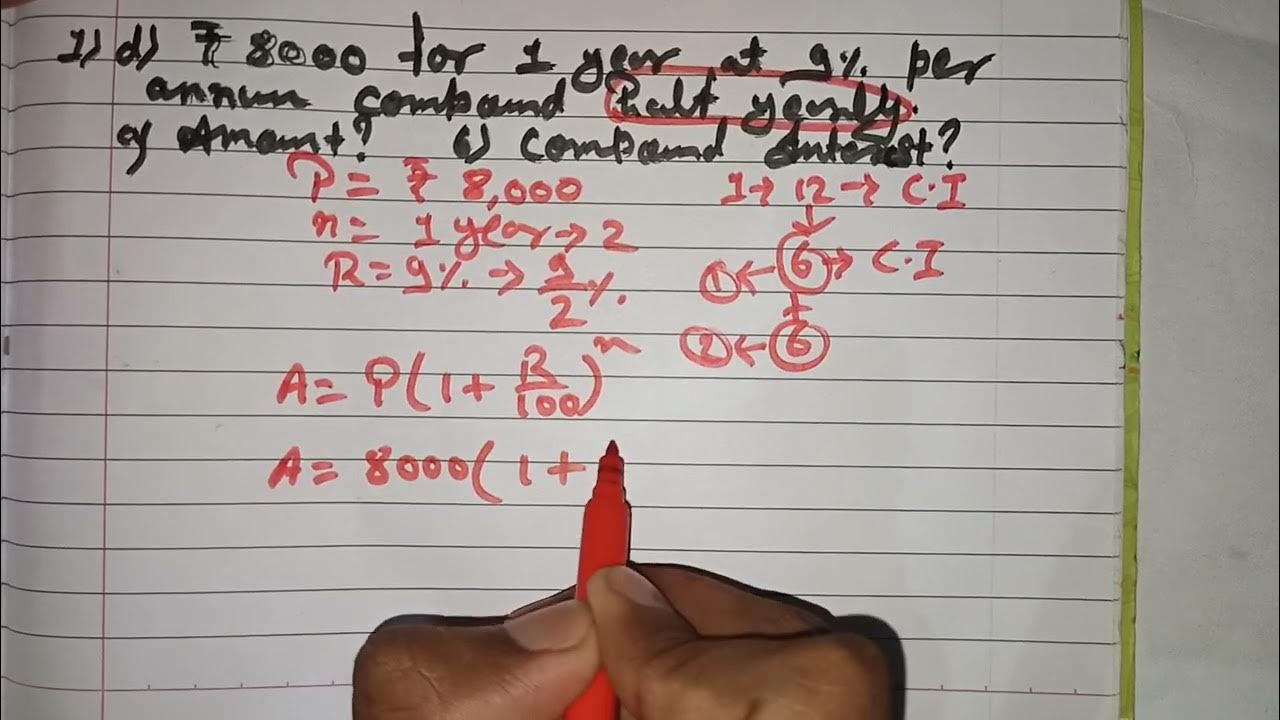 1) d) ₹ 8000 for 1 year at 9% per
annum compound half yearly.
a) Amount? b) compound interest?
P = ₹ 8,000
n = 1 year → 2
R = 9% → 9/2 %.
1 → 12 → C.I
① ← ⑥ → C.I
+
② ← ⑥
A = P(1 + R/100)^n
A = 8000(1 +